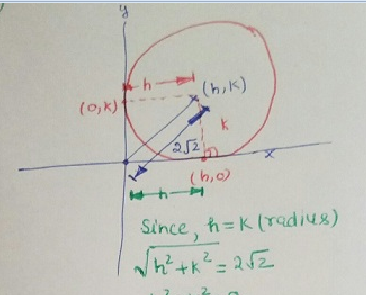 y
h
(h,K)
(0,K)
K
2√2
x
(h,0)
h
Since, h=K(radius)
√h²+K² = 2√2